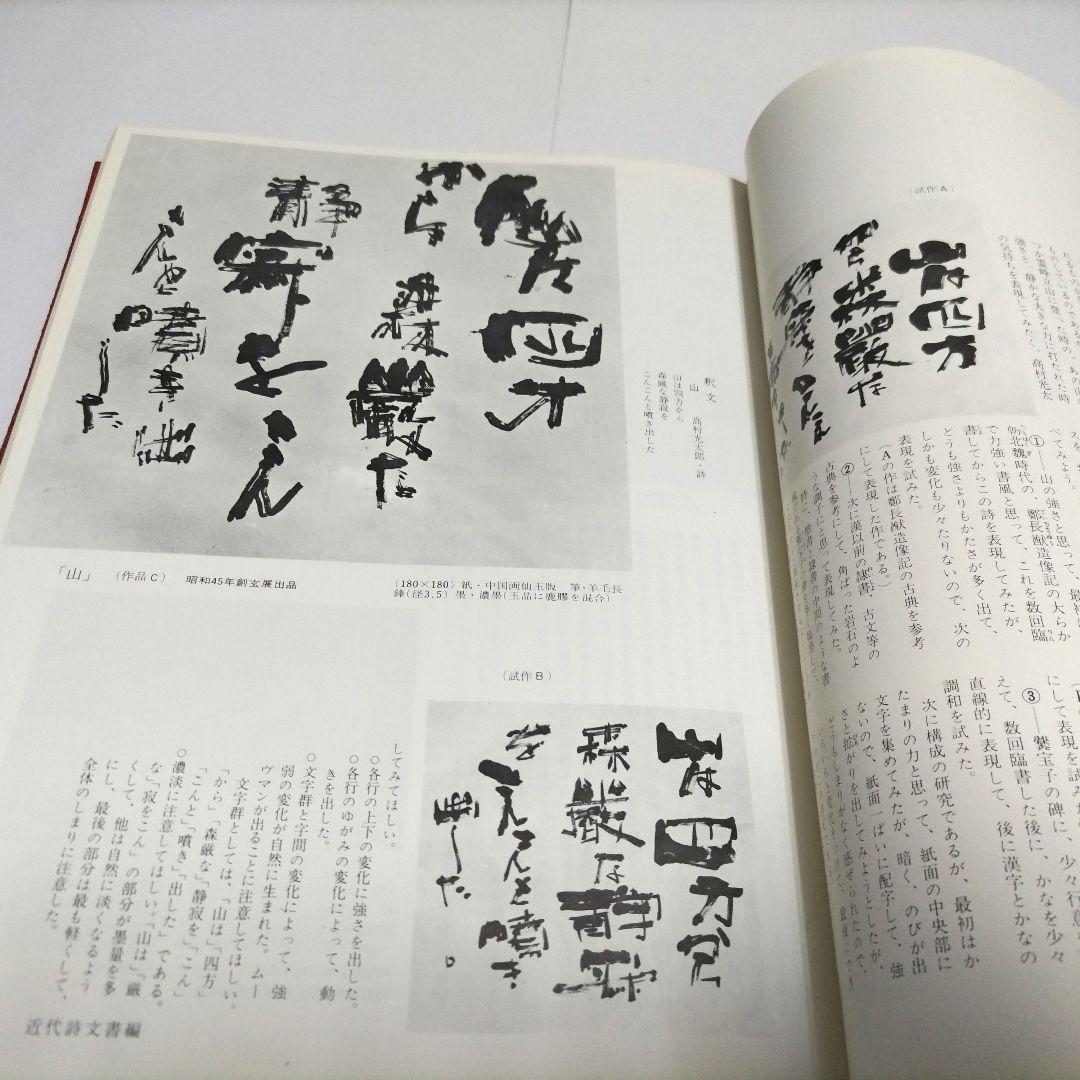 山は四方
から
森厳な
静寂を
こん
こんと噴き出
した
釈文
山　高村光太郎・詩
山は四方から
森厳な静寂を
こんこんと噴き出した
「山」　（作品C）　昭和45年創玄展出品
(180×180) 紙・中国画仙玉版　筆・羊毛長
鋒(径3.5) 墨・濃墨(玉品に鹿膠を混合)
（試作B）
山は四方から
森厳な静寂
をこんこんと噴き
出した。
してみてほしい。
○各行の上下の変化に強さを出した。
○各行のゆがみの変化によって、動
きを出した。
○文字群と字間の変化によって、強
弱の変化が自然に生まれた。ムー
ヴマンが出ることに注意してほしい。
文字群としては、「山は」「四方」
「から」「森厳な」「静寂を」「こん」
「こんと」「噴き」「出した」である。
○濃淡に注意してほしい。「山は」「厳
な」「寂をこん」の部分が墨量を多
くして、他は自然に淡くなるよう
にし、最後の部分は最も軽くして、
全体のしまりに注意した。
近代詩文書編
（試作A）
山は四方
から森厳な
つか霊峰立山に登った時の、あの山の
強さと、静かな大きな力に打たれた時
の気持ちを表現してみたく、高村光太
べてみよう。
①――山の強さと思って、最初
朝北魏時代の、鄭長猷造像記の大らか
で力強い書風と思って、これを数回臨
書してからこの詩を表現してみたが、
どうも強さよりもかたさが多く出て、
しかも変化も少々たりないので、次の
表現を試みた。
（Aの作は鄭長猷造像記の古典を参考
にして表現した作である。）
②――次に漢以前の隷書、古文等の
古典を参考にして、角ばった岩石のよ
うな調子にと思って表現してみた。
にして表現を試み
③――爨宝子の碑に、少々行意
えて、数回臨書した後に、かなを少々
直線的に表現して、後に漢字とかなの
調和を試みた。
次に構成の研究であるが、最初はか
たまりの力と思って、紙面の中央部に
文字を集めてみたが、暗く、のびが出
ないので、紙面一ぱいに配字して、強
さと拡がりを出してみようとしたが、